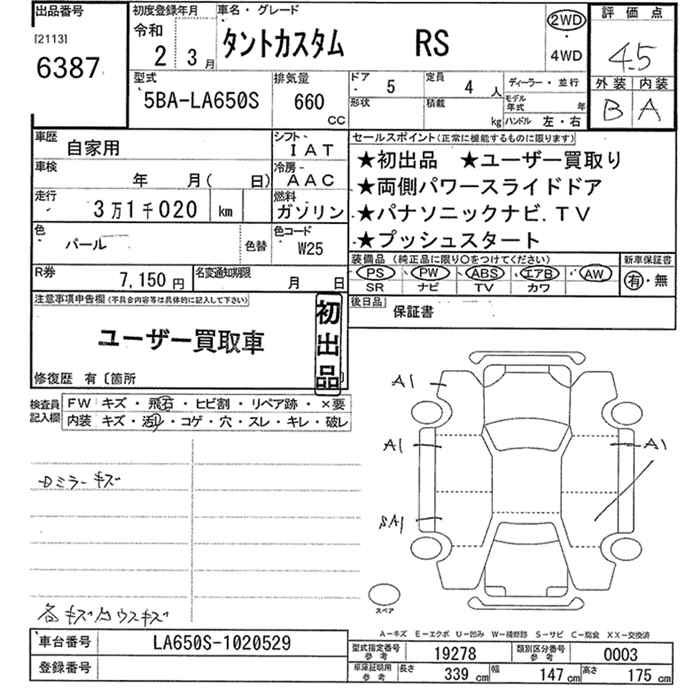 出品番号 初度登録年月 車名・グレード 評価点
[2113] 令和 2WD
6387 2 3月 タントカスタム RS ・ 4.5
4WD
型式 排気量 ドア 5 定員 4人 ディーラー・並行 外装 内装
5BA-LA650S 660 CC 形状 積載 kg モデル年式 年 B A
ハンドル 左・右
車歴 自家用 シフト IAT セールスポイント(正常に機能するものに限ります)
車検 年 月( 日) 冷房 AAC ★初出品 ★ユーザー買取り
走行 3万1千020 km 燃料 ガソリン ★両側パワースライドドア
★パナソニックナビ.TV
色 パール 色替 色コード W25 ★プッシュスタート
装備品(純正品に限り○をつけてください) 新車保証書
R券 7,150円 名変通知期限 月 日 PS PW ABS エアB AW 有・無
SR ナビ TV カワ
注意事項申告欄(不具合内容等は具体的に記入して下さい) 後日品 保証書
ユーザー買取車 初出品
修復歴 有〔箇所
検査員記入欄 FW キズ・飛石・ヒビ割・リペア跡・×要
内装 キズ・汚れ・コゲ・穴・スレ・キレ・破レ
A1
A1 A1
Dミラーキズ
SA1
スペア
各キズ凹ウスキズ
A−キズ E−エクボ U−凹み W−補修跡 S−サビ C−腐食 XX−交換済
車台番号 LA650S-1020529 型式指定番号 参考 19278 類別区分番号 参考 0003
登録番号 車庫証明用 参考 長さ 339cm 幅 147cm 高さ 175cm